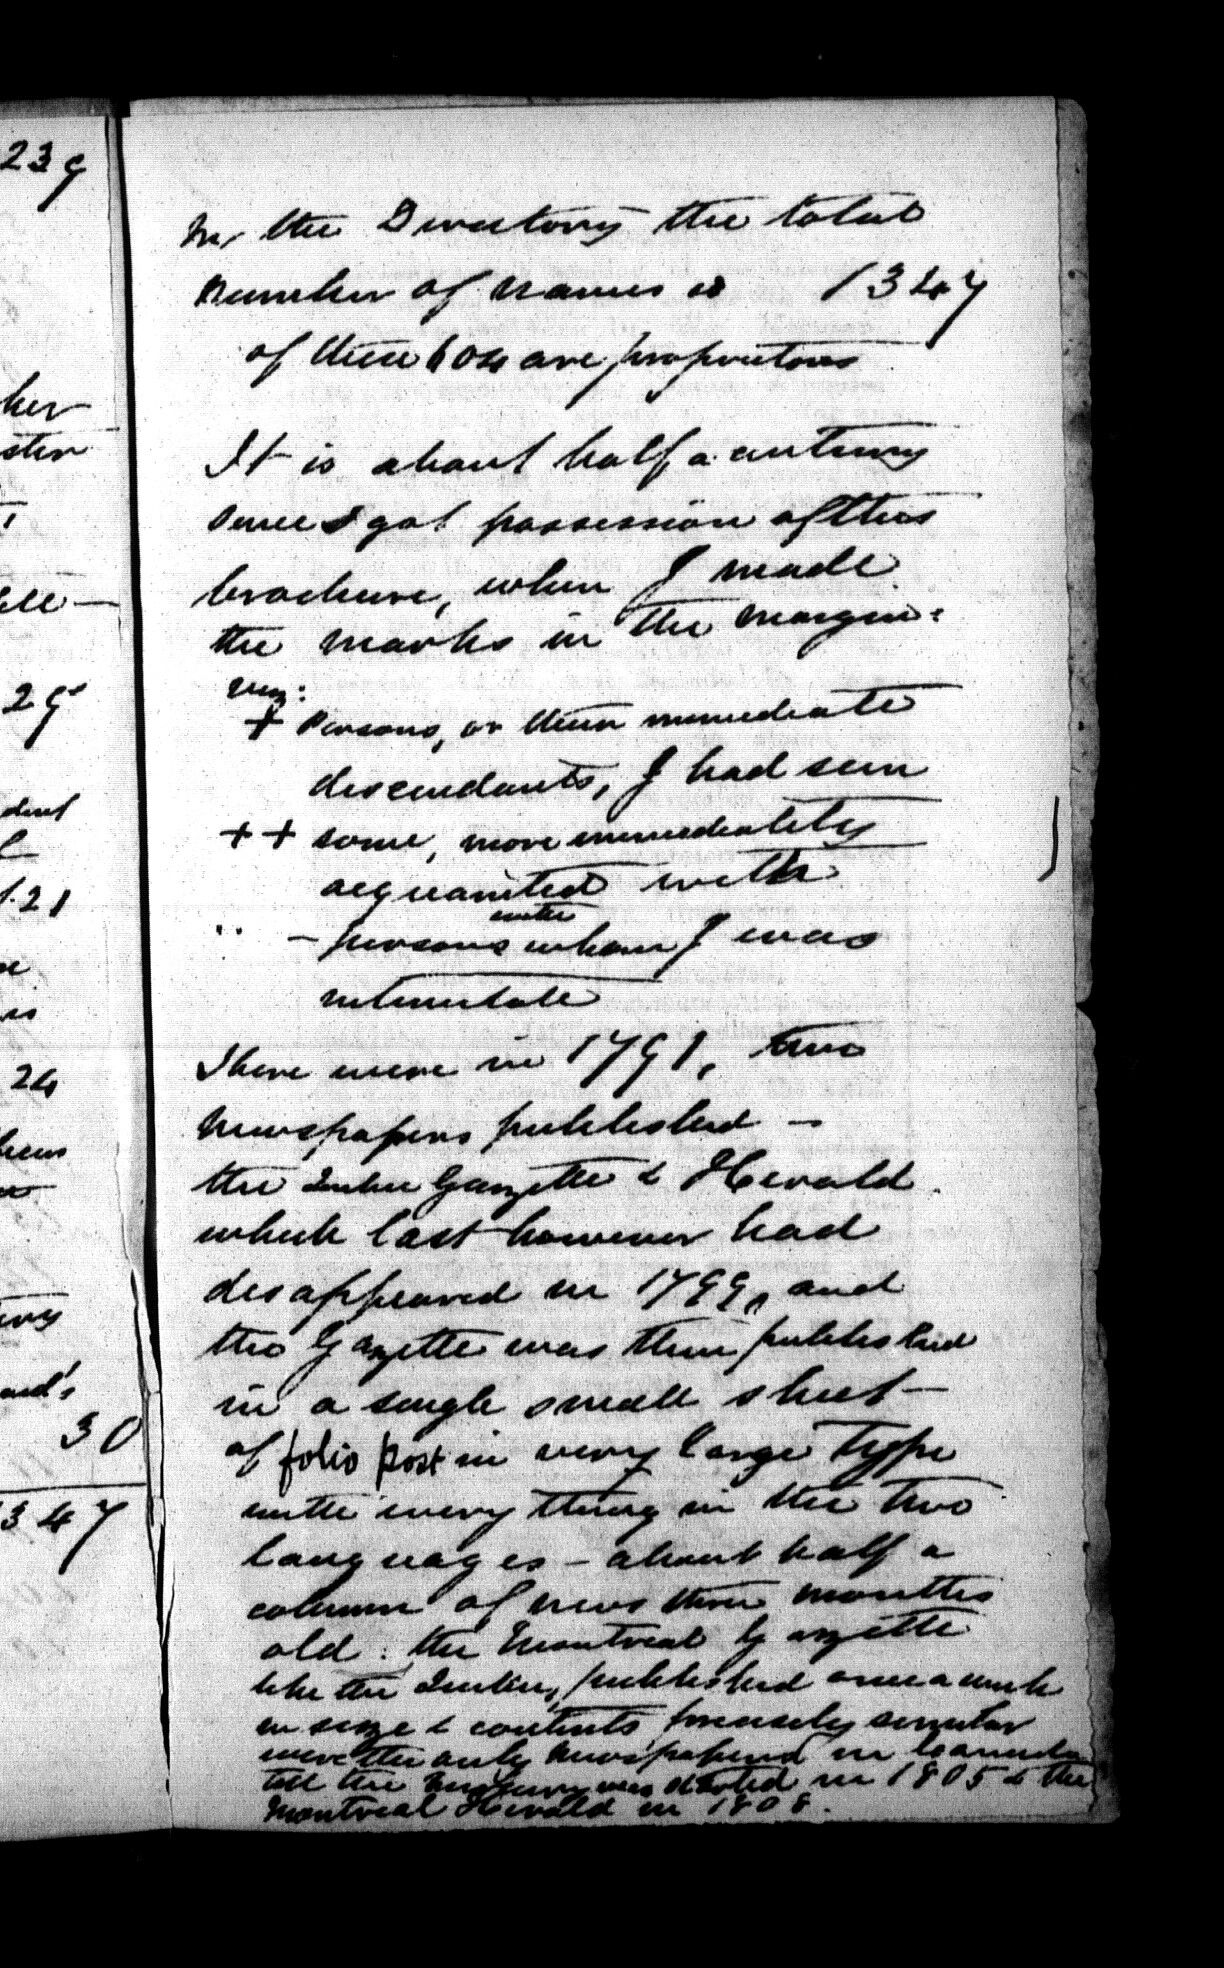 239
ker
ster
29
dent
.21
24
30
1347
In the Directory the total
number of names is 1347
of these 604 are proprietors
It is about half a century
since I got possession of this
brochure, when I made
the marks in the margin:
viz:
+ Persons, or their immediate
descendants, I had seen
++ some, more immediately
acquainted with
with
·· – persons whom I was
intimate
There were in 1791, two
Newspapers published –
the Quebec Gazette & Herald
which last however had
disappeared in 1799, and
the Gazette was then published
in a single small sheet –
of folio post in very large Type
with every thing in the two
languages – about half a
column of news three months
old : the Montreal Gazette
like the Quebec, published once a week
in size & contents, precisely similar
were the only Newspapers in Canada
till the Mercury was started in 1805 & the
Montreal Herald in 1808.